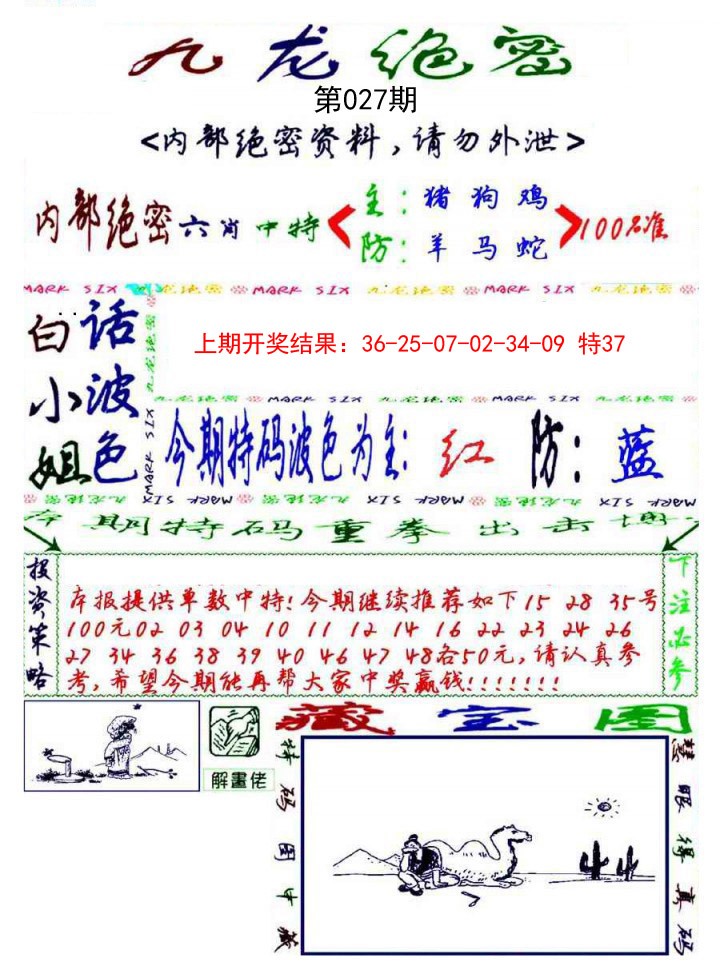 九龙绝密
第027期
<内部绝密资料,请勿外泄>
内部绝密六肖中特
主：猪 狗 鸡
防：羊 马 蛇
100%准
MARK SIX 九龙绝密 MARK SIX 九龙绝密 MARK SIX 九龙绝密
白小姐
话波色
九龙绝密
MARK SIX
上期开奖结果：36-25-07-02-34-09 特37
九龙绝密 MARK SIX 九龙绝密 MARK SIX 九龙绝密
今期特码波色为主：红 防：蓝
九龙绝密 MARK SIX 九龙绝密 MARK SIX 九龙绝密 MARK SIX
本期特码重拳出击博
投资策略
本报提供单数中特!今期继续推荐如下15 28 35号
100元02 03 04 10 11 12 14 16 22 23 24 26
27 34 36 38 39 40 46 47 48各50元,请认真参
考,希望今期能再帮大家中奖赢钱!!!!!!!
下注必参
解畫佬
藏宝图
特码图中藏
慧眼得真码